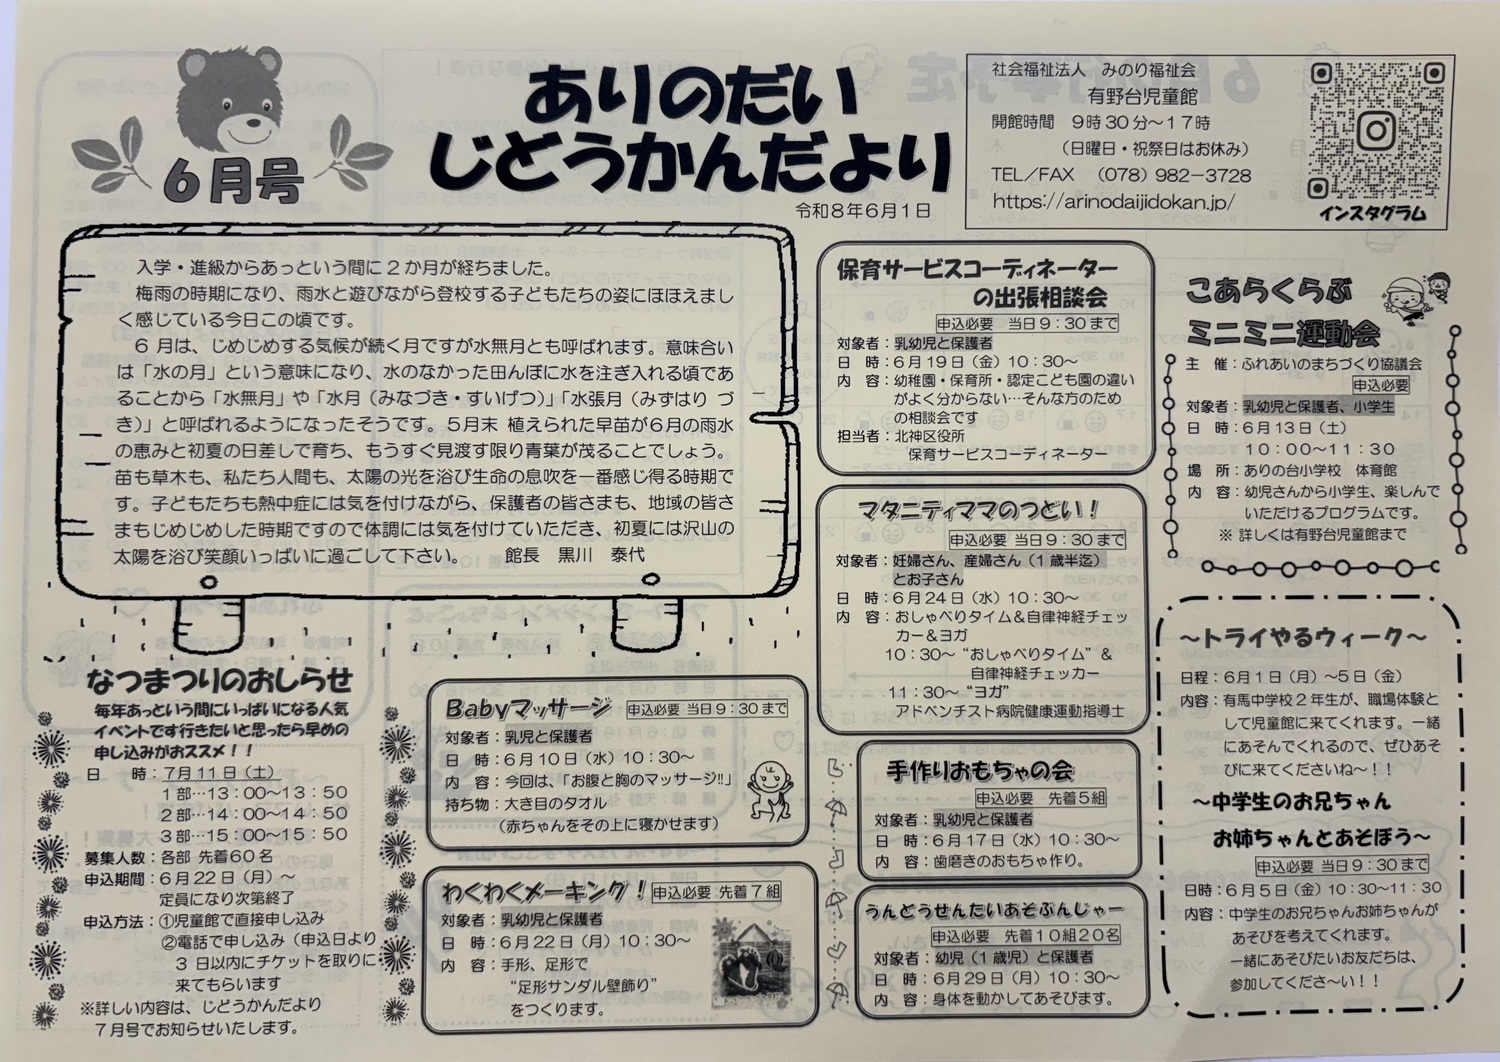 6月号
ありのだい
じどうかんだより
令和8年6月1日
社会福祉法人 みのり福祉会
有野台児童館
開館時間 9時30分～17時
（日曜日・祝祭日はお休み）
TEL／FAX （078）982－3728
https://arinodaijidokan.jp/
インスタグラム
入学・進級からあっという間に2か月が経ちました。
梅雨の時期になり、雨水と遊びながら登校する子どもたちの姿にほほえまし
く感じている今日この頃です。
6月は、じめじめする気候が続く月ですが水無月とも呼ばれます。意味合い
は「水の月」という意味になり、水のなかった田んぼに水を注ぎ入れる頃であ
ることから「水無月」や「水月（みなづき・すいげつ）」「水張月（みずはり づ
き）」と呼ばれるようになったそうです。5月末 植えられた早苗が6月の雨水
の恵みと初夏の日差しで育ち、もうすぐ見渡す限り青葉が茂ることでしょう。
苗も草木も、私たち人間も、太陽の光を浴び生命の息吹を一番感じ得る時期で
す。子どもたちも熱中症には気を付けながら、保護者の皆さまも、地域の皆さ
まもじめじめした時期ですので体調には気を付けていただき、初夏には沢山の
太陽を浴び笑顔いっぱいに過ごして下さい。 館長 黒川 泰代
なつまつりのおしらせ
毎年あっという間にいっぱいになる人気
イベントです行きたいと思ったら早めの
申し込みがおススメ！！
日 時：7月11日（土）
1部…13：00～13：50
2部…14：00～14：50
3部…15：00～15：50
募集人数：各部 先着60名
申込期間：6月22日（月）～
定員になり次第終了
申込方法：①児童館で直接申し込み
②電話で申し込み（申込日より
3 日以内にチケットを取りに
来てもらいます
※詳しい内容は、じどうかんだより
7月号でお知らせいたします。
Babyマッサージ 申込必要 当日9：30まで
対象者：乳児と保護者
日 時：6月10日（水）10：30～
内 容：今回は、「お腹と胸のマッサージ!!」
持ち物：大き目のタオル
（赤ちゃんをその上に寝かせます）
わくわくメーキング！ 申込必要 先着7組
対象者：乳幼児と保護者
日 時：6月22日（月）10：30～
内 容：手形、足形で
“足形サンダル壁飾り”
をつくります。
保育サービスコーディネーター
の出張相談会
申込必要 当日9：30まで
対象者：乳幼児と保護者
日 時：6月19日（金）10：30～
内 容：幼稚園・保育所・認定こども園の違い
がよく分からない…そんな方のため
の相談会です
担当者：北神区役所
保育サービスコーディネーター
マタニティママのつどい！
申込必要 当日9：30まで
対象者：妊婦さん、産婦さん（1歳半迄）
とお子さん
日 時：6月24日（水）10：30～
内 容：おしゃべりタイム＆自律神経チェッ
カー＆ヨガ
10：30～“おしゃべりタイム”＆
自律神経チェッカー
11：30～“ヨガ”
アドベンチスト病院健康運動指導士
手作りおもちゃの会
申込必要 先着5組
対象者：乳幼児と保護者
日 時：6月17日（水）10：30～
内 容：歯磨きのおもちゃ作り。
うんどうせんたいあそぶんじゃー
申込必要 先着10組20名
対象者：幼児（1歳児）と保護者
日 時：6月29日（月）10：30～
内 容：身体を動かしてあそびます。
こあらくらぶ
ミニミニ運動会
主 催：ふれあいのまちづくり協議会
申込必要
対象者：乳幼児と保護者、小学生
日 時：6月13日（土）
10：00～11：30
場 所：ありの台小学校 体育館
内 容：幼児さんから小学生、楽しんで
いただけるプログラムです。
※ 詳しくは有野台児童館まで
～トライやるウィーク～
日程：6月1日（月）～5日（金）
内容：有馬中学校2年生が、職場体験と
して児童館に来てくれます。一緒
にあそんでくれるので、ぜひあそ
びに来てくださいね～！！
～中学生のお兄ちゃん
お姉ちゃんとあそぼう～
申込必要 当日9：30まで
日時：6月5日（金）10：30～11：30
内容：中学生のお兄ちゃんお姉ちゃんが
あそびを考えてくれます。
一緒にあそびたいお友だちは、
参加してくださ～い！！